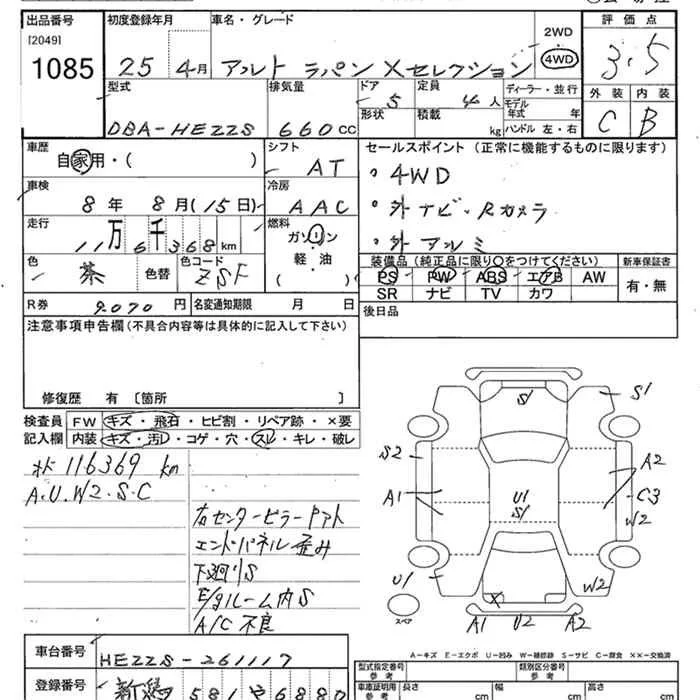 出品番号 初度登録年月 車名・グレード 2WD 評価点
[2049]
1085 25 4月 アルト ラパン Xセレクション 4WD 3.5
型式 排気量 ドア 定員 ディーラー・並行 外装 内装
5 4人 モデル年式 年
DBA-HE22S 660cc 形状 積載 kg ハンドル 左・右 C B
車歴 シフト セールスポイント(正常に機能するものに限ります)
自家用・( ) AT ・4WD
車検 冷房
8年 8月(15日) AAC ・外ナビ・Rカメラ
走行 燃料
11万6千368km ガソリン ・外アルミ
色 色コード 軽・油 装備品(純正品に限り○をつけてください) 新車保証書
茶 色替 ZSF ( ) PS PW ABS エアB AW 有・無
SR ナビ TV カワ
R券 9070円 名変通知期限 月 日 後日品
注意事項申告欄(不具合内容等は具体的に記入して下さい)
修復歴 有 〔箇所 〕
検査員 FW キズ・飛石・ヒビ割・リペア跡・×要
記入欄 内装 キズ・汚レ・コゲ・穴・スレ・キレ・破レ
S1 S1
S2 A2
A1 U1 S1 C3
W2
U1 W2
X
スペア A1 U2 A2
状 116369 km
A.U.W2.S.C
右センターピラー
エンドパネル歪み
下廻りS
E/gルーム内S
A/C不良
A-キズ E-エクボ U-凹み W-補修跡 S-サビ C-腐食 XX-交換済
車台番号 HE22S-261117
型式指定番号 参考 類別区分番号 参考
登録番号 581 や 6880
車庫証明用 参考 長さ cm 幅 cm 高さ cm